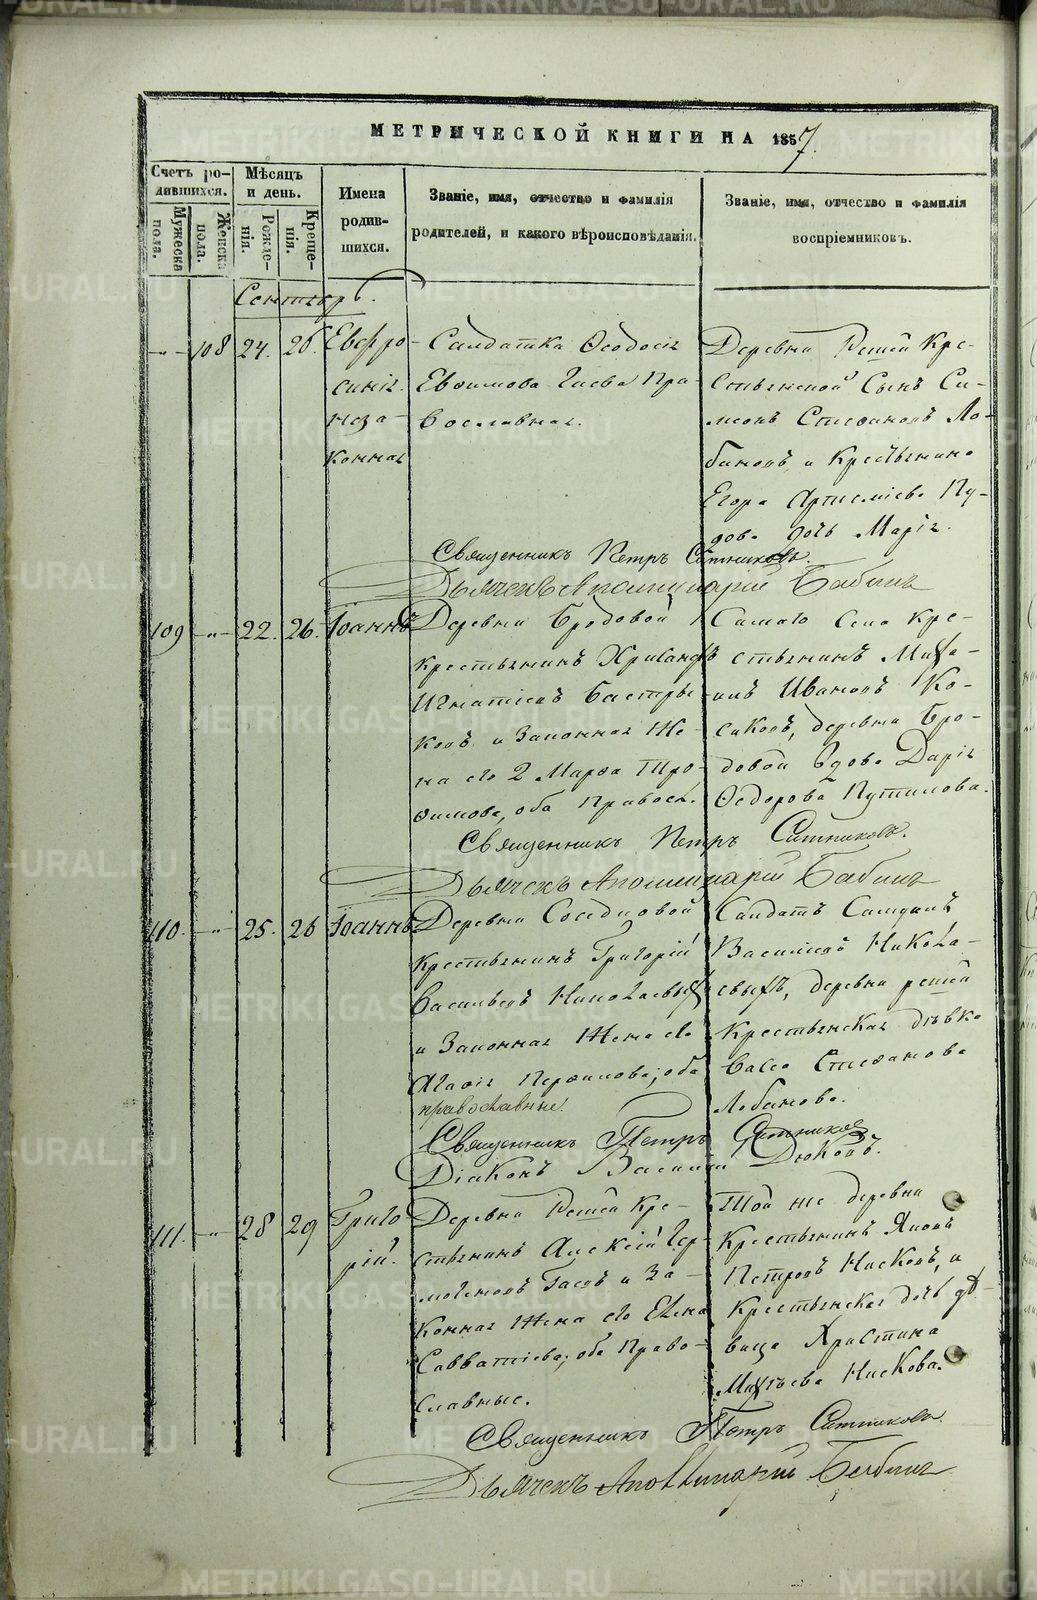 МЕТРИЧЕСКОЙ КНИГИ НА 1857.
Счетъ ро-
дившихся.
Мужеска
пола.
Женска
пола.
Мѣсяцъ
и день.
Рожде-
нія.
Креще-
нія.
Имена
родив-
шихся.
Званіе, имя, отчество и фамилія
родителей, и какого вѣроисповѣданія.
Званіе, имя, отчество и фамилія
воспріемниковъ.
Сентябрь.
108 24. 26.
Евфро-
синія
неза-
конная
Салдатка Ѳеодосія
Евѳимова Гаева Пра-
вославная.
Деревни Решей Кре-
стьянской Сынъ Си-
меонъ Стефановъ Ло-
бановъ и Крестьянина
Егора Артеміева Пу-
дова дочь Марія.
Священникъ Петръ Ситниковъ.
Дьячекъ Аполлинарій Бабинъ
109 22. 26.
Іоаннъ
Деревни Бродовой
крестьянинъ Хрисанфъ
Игнатіевъ Бастры-
ковъ и Законная Же-
на его 2 Марѳа Тро-
фимова, оба Правосл.
Самаго Села Кре-
стьянинъ Миха-
илъ Ивановъ Ко-
сиковъ, деревни Бро-
довой вдова Дарія
Ѳедорова Путилова.
Священникъ Петръ Ситниковъ.
Дьячекъ Аполлинарій Бабинъ
110. 25. 26
Іоаннъ
Деревни
Крестьянинъ Григорій
Васильевъ Николаевыхъ
и Законная Жена его
Агафія Перфилова; оба
православные.
Салдатъ
Василіевъ Никола-
евыхъ, деревни решей
Крестьянская дѣвка
Васса Стефанова
Лобанова.
Священникъ Петръ Ситниковъ
Діаконъ Василій Дюковъ.
111. 28 29
Григо
рій.
Деревни Решей Кре-
стьянинъ Алексій Гер-
могеновъ Гаевъ и За-
конная Жена его Елена
Савватіева; оба Право-
славные.
Той же деревни
Крестьянинъ Яковъ
Петровъ Нисковъ, и
Крестьянская дочь дѣ-
вица Христина
Матѳѣева Нискова.
Священникъ Петръ Ситниковъ.
Дьячекъ Аполлинарій Бабинъ
METRIKI.GASO-URAL.RU